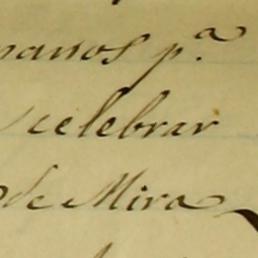 manos p.ª
celebrar
de Mira